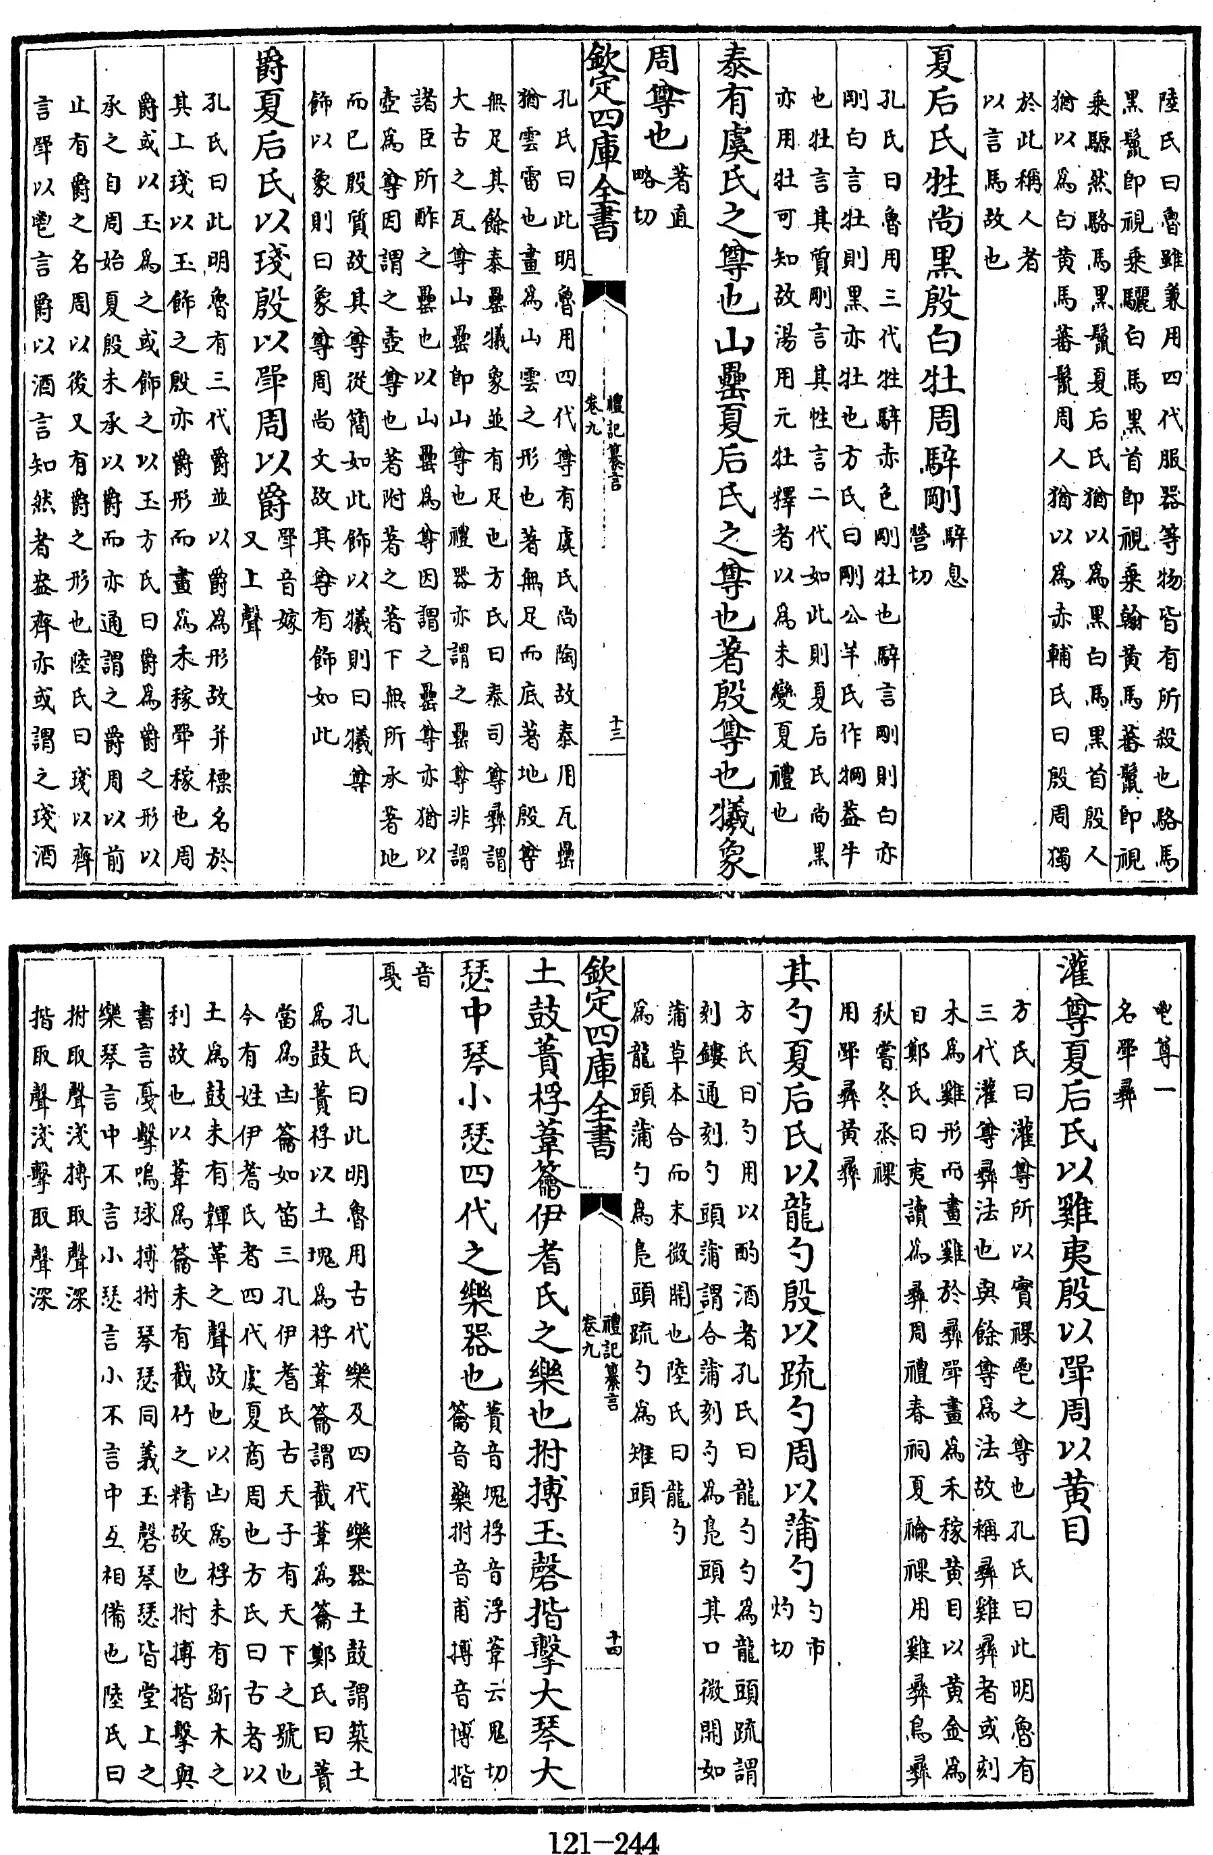 陸氏曰魯雖兼用四代服器等物皆有所殺也駱馬
黑鬣即視乘驪白馬黑首即視乘翰黃馬蕃鬣即視
乘騵然駱馬黑鬣夏后氏猶以為黑白馬黑首殷人
猶以為白黃馬蕃鬣周人猶以為赤輔氏曰殷周獨
於此稱人者
以言馬故也
夏后氏牲尚黑殷白牡周騂剛
騂息
營切
孔氏曰魯用三代牲騂赤色剛牡也騂言剛則白亦
剛白言牡則黑亦牡也方氏曰剛公羊氏作犅蓋牛
也牡言其質剛言其性言二代如此則夏后氏尚黑
亦用牡可知故湯用元牡釋者以為未變夏禮也
泰有虞氏之尊也山罍夏后氏之尊也著殷尊也犧象
周尊也
著直
略切
欽定四庫全書
禮記纂言
卷九
十三
孔氏曰此明魯用四代尊有虞氏尚陶故泰用瓦罍
猶雲雷也畫為山雲之形也著無足而底著地殷尊
無足其餘泰罍犧象並有足也方氏曰泰司尊彝謂
大古之瓦尊山罍即山尊也禮器亦謂之罍尊非謂
諸臣所酢之罍也以山罍為尊因謂之罍尊亦猶以
壺為尊因謂之壺尊也著附著之著下無所承著地
而已殷質故其尊從簡如此飾以犧則曰犧尊
飾以象則曰象尊周尚文故其尊有飾如此
爵夏后氏以琖殷以斝周以爵
斝音嫁
又上聲
孔氏曰此明魯有三代爵並以爵為形故并標名於
其上琖以玉飾之殷亦爵形而畫為禾稼斝稼也周
爵或以玉為之或飾之以玉方氏曰爵為爵之形以
承之自周始夏殷未承以爵而亦通謂之爵周以前
止有爵之名周以後又有爵之形也陸氏曰琖以齊
言斝以鬯言爵以酒言知然者盎齊亦或謂之琖酒
鬯尊一
名斝彝
灌尊夏后氏以雞夷殷以斝周以黃目
方氏曰灌尊所以實祼鬯之尊也孔氏曰此明魯有
三代灌尊彝法也與餘尊為法故稱彝雞彝者或刻
木為雞形而畫雞於彝斝畫為禾稼黃目以黃金為
目鄭氏曰夷讀為彝周禮春祠夏禴祼用雞彝鳥彝
秋嘗冬烝祼
用斝彝黃彝
其勺夏后氏以龍勺殷以疏勺周以蒲勺
勺市
灼切
方氏曰勺用以酌酒者孔氏曰龍勺勺為龍頭疏謂
刻鏤通刻勺頭蒲謂合蒲刻勺為鳧頭其口微開如
蒲草本合而末微開也陸氏曰龍勺
為龍頭蒲勺為鳧頭疏勺為雉頭
欽定四庫全書
禮記纂言
卷九
十四
土鼓蕢桴葦籥伊耆氏之樂也拊搏玉磬揩擊大琴大
瑟中琴小瑟四代之樂器也
蕢音塊桴音浮葦云鬼切
籥音藥拊音甫搏音博揩
音
戞
孔氏曰此明魯用古代樂及四代樂器土鼓謂築土
為鼓蕢桴以土塊為桴葦籥謂截葦為籥鄭氏曰蕢
當為凷籥如笛三孔伊耆氏古天子有天下之號也
今有姓伊耆氏者四代虞夏商周也方氏曰古者以
土為鼓未有韗革之聲故也以凷為桴未有斲木之
利故也以葦為籥未有截竹之精故也拊搏揩擊與
書言戞擊鳴球搏拊琴瑟同義玉磬琴瑟皆堂上之
樂琴言中不言小瑟言小不言中互相備也陸氏曰
拊取聲淺搏取聲深
揩取聲淺擊取聲深
121-244